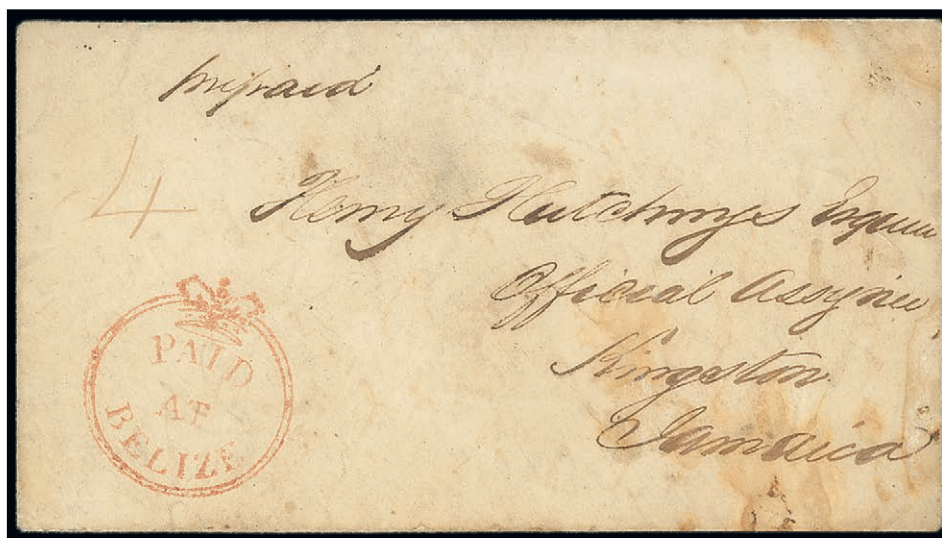 prepaid
4
Henry Hutchings Esquire
Official Assignee
Kingston
Jamaica
PAID
AT
BELIZE